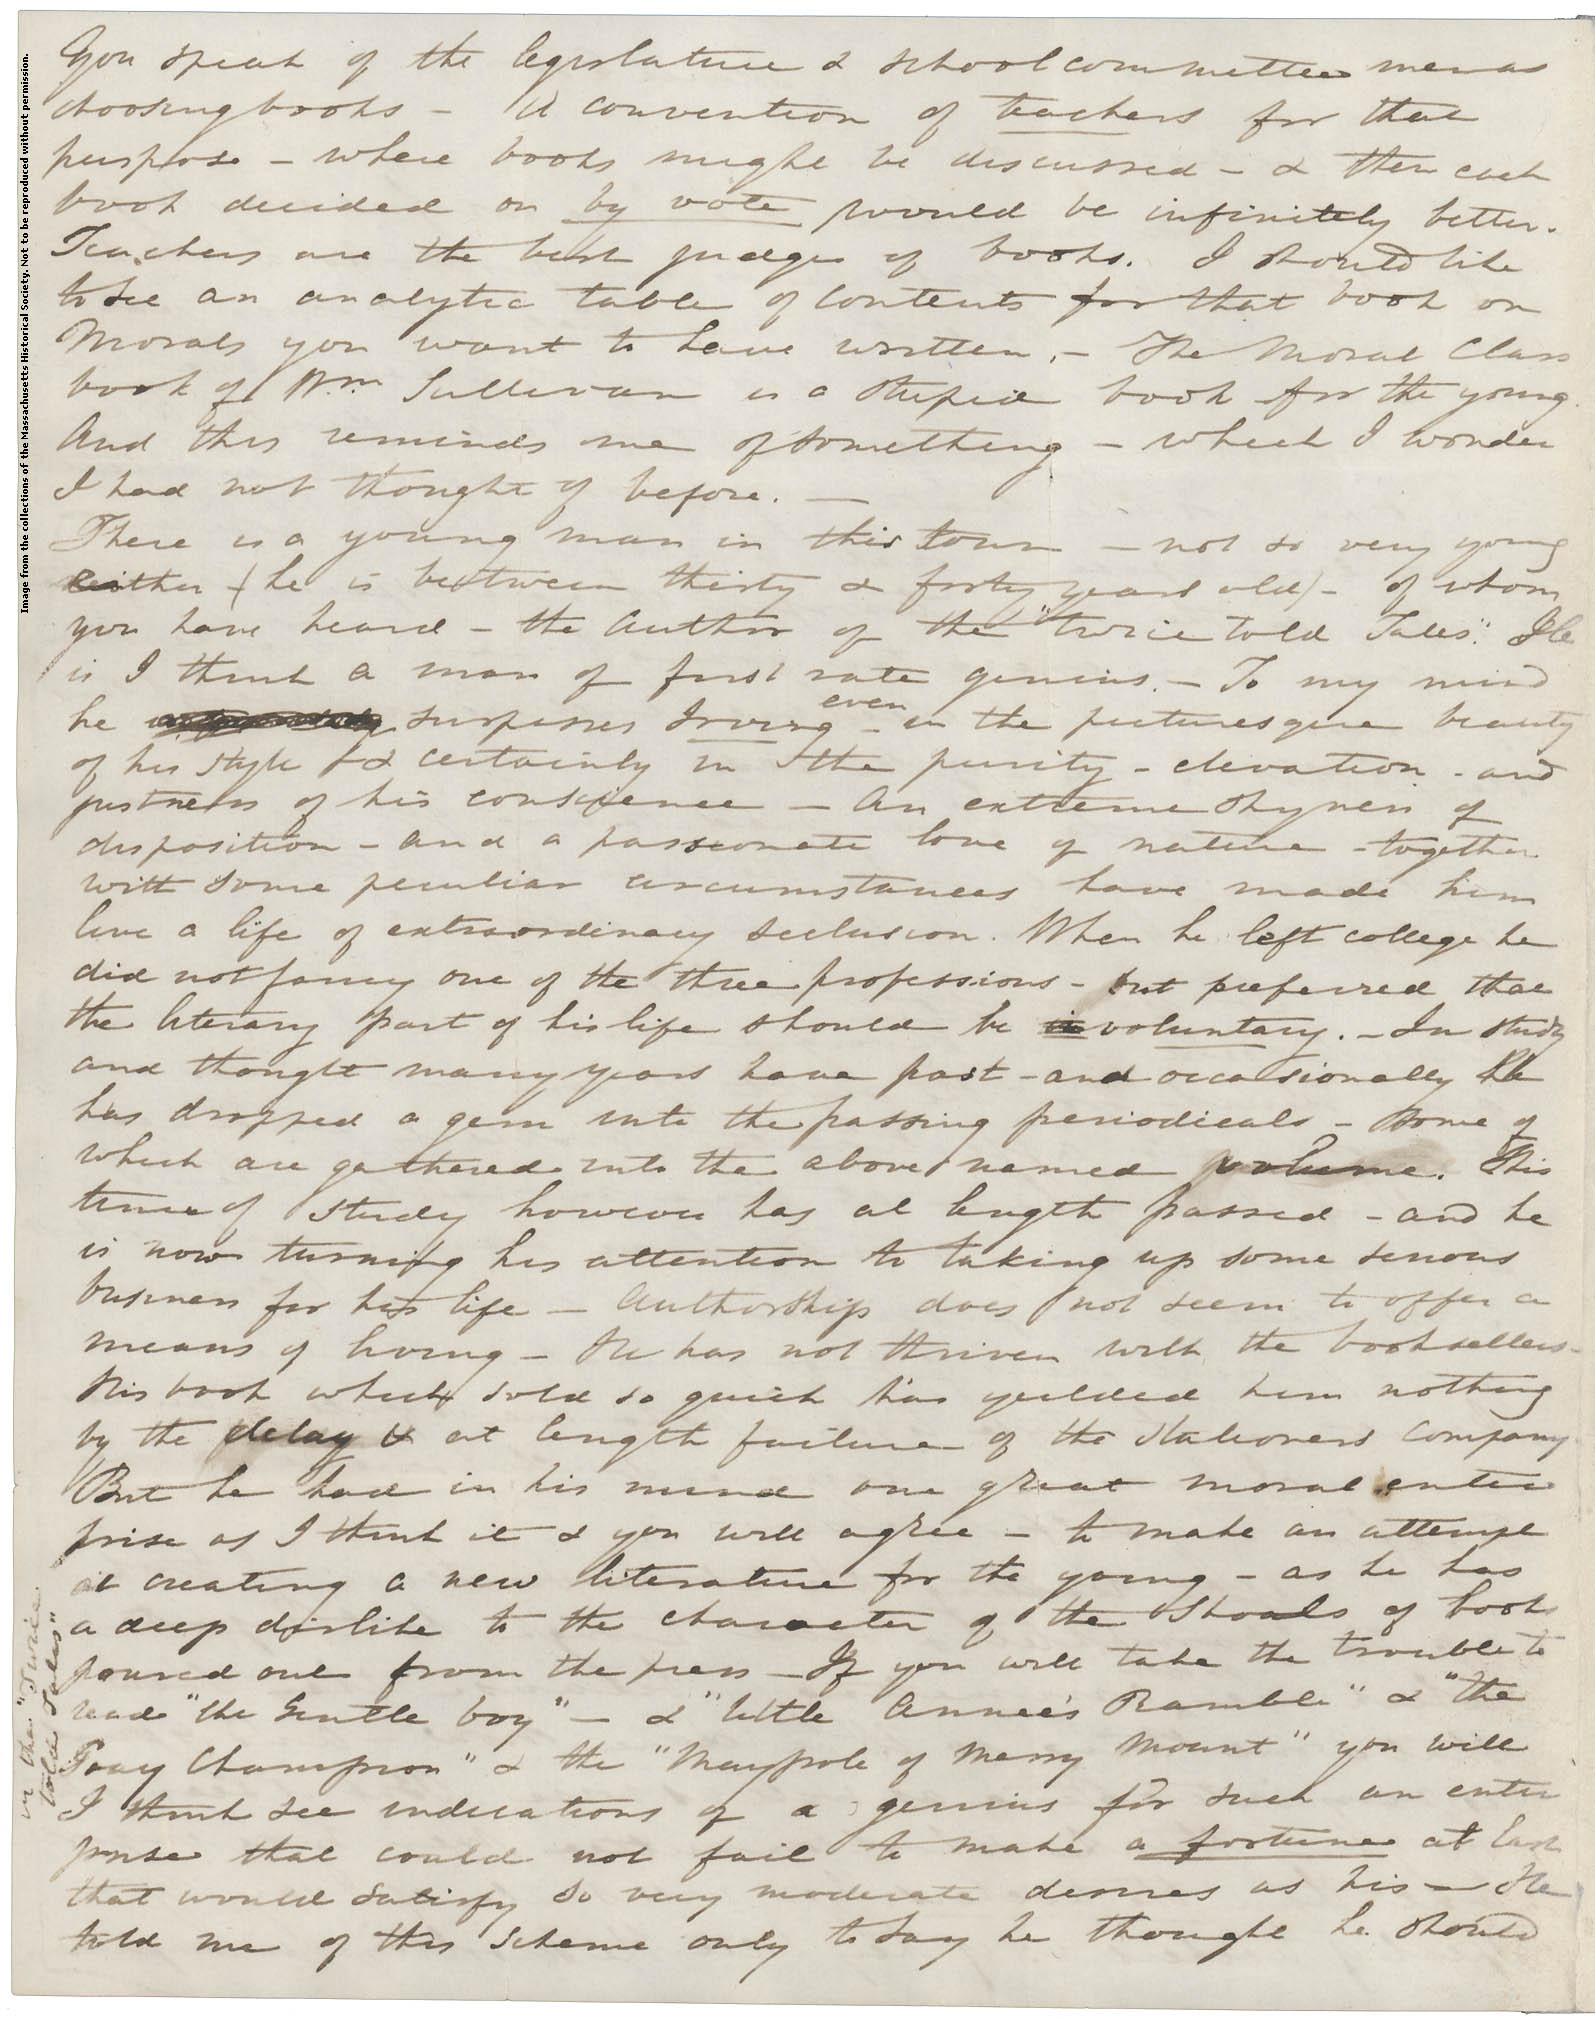 Image from the collections of the Massachusetts Historical Society. Not to be reproduced without permission.
You speak of the legislature & school committee men as
choosing books – A convention of teachers for that
purpose – where books might be discussed – & then each
book decided on by vote would be infinitely better.
Teachers are the best judges of books. I should like
to see an analytic table of contents for that book on
Morals you want to have written. – The Moral Class
book of Wm Sullivan is a stupid book for the young.
And this reminds me of something – which I wonder
I had not thought of before. —
There is a young man in this town – not so very young
either (he is between thirty & forty years old) – of whom
you have heard – the Author of the "twice told Tales". He
is I think a man of first rate genius. – To my mind
he surpasses Irving even – in the picturesque beauty
of his style & certainly in the purity – elevation – and
justness of his conscience – An extreme shyness of
disposition – and a passionate love of nature – together
with some peculiar circumstances have made him
live a life of extraordinary seclusion. When he left college he
did not fancy one of the three professions – but preferred that
the literary part of his life should be voluntary. – In study
and thought many years have past – and occasionally he
has dropped a gem into the passing periodicals – some of
which are gathered into the above named volume. This
time of study however has at length passed – and he
is now turning his attention to taking up some serious
business for his life – Authorship does not seem to offer a
means of living – He has not thriven with the booksellers –
His book which sold so quick has yeilded him nothing
by the delay & at length failure of the Stationers Company
But he had in his mind one great moral enter
prise as I think it & you will agree – to make an attempt
at creating a new literature for the young – as he has
a deep dislike to the character of the shoals of books
poured out from the press – If you will take the trouble to
read "the Gentle boy" – & "little Annie's Ramble" & "the
Gray Champion" & the "Maypole of Merry Mount" you will
I think see indications of a genius for such an enter
prise that could not fail to make a fortune at last
that would satisfy so very moderate desires as his – He
told me of this scheme only to say he thought he should
in the "Twice
told Tales"